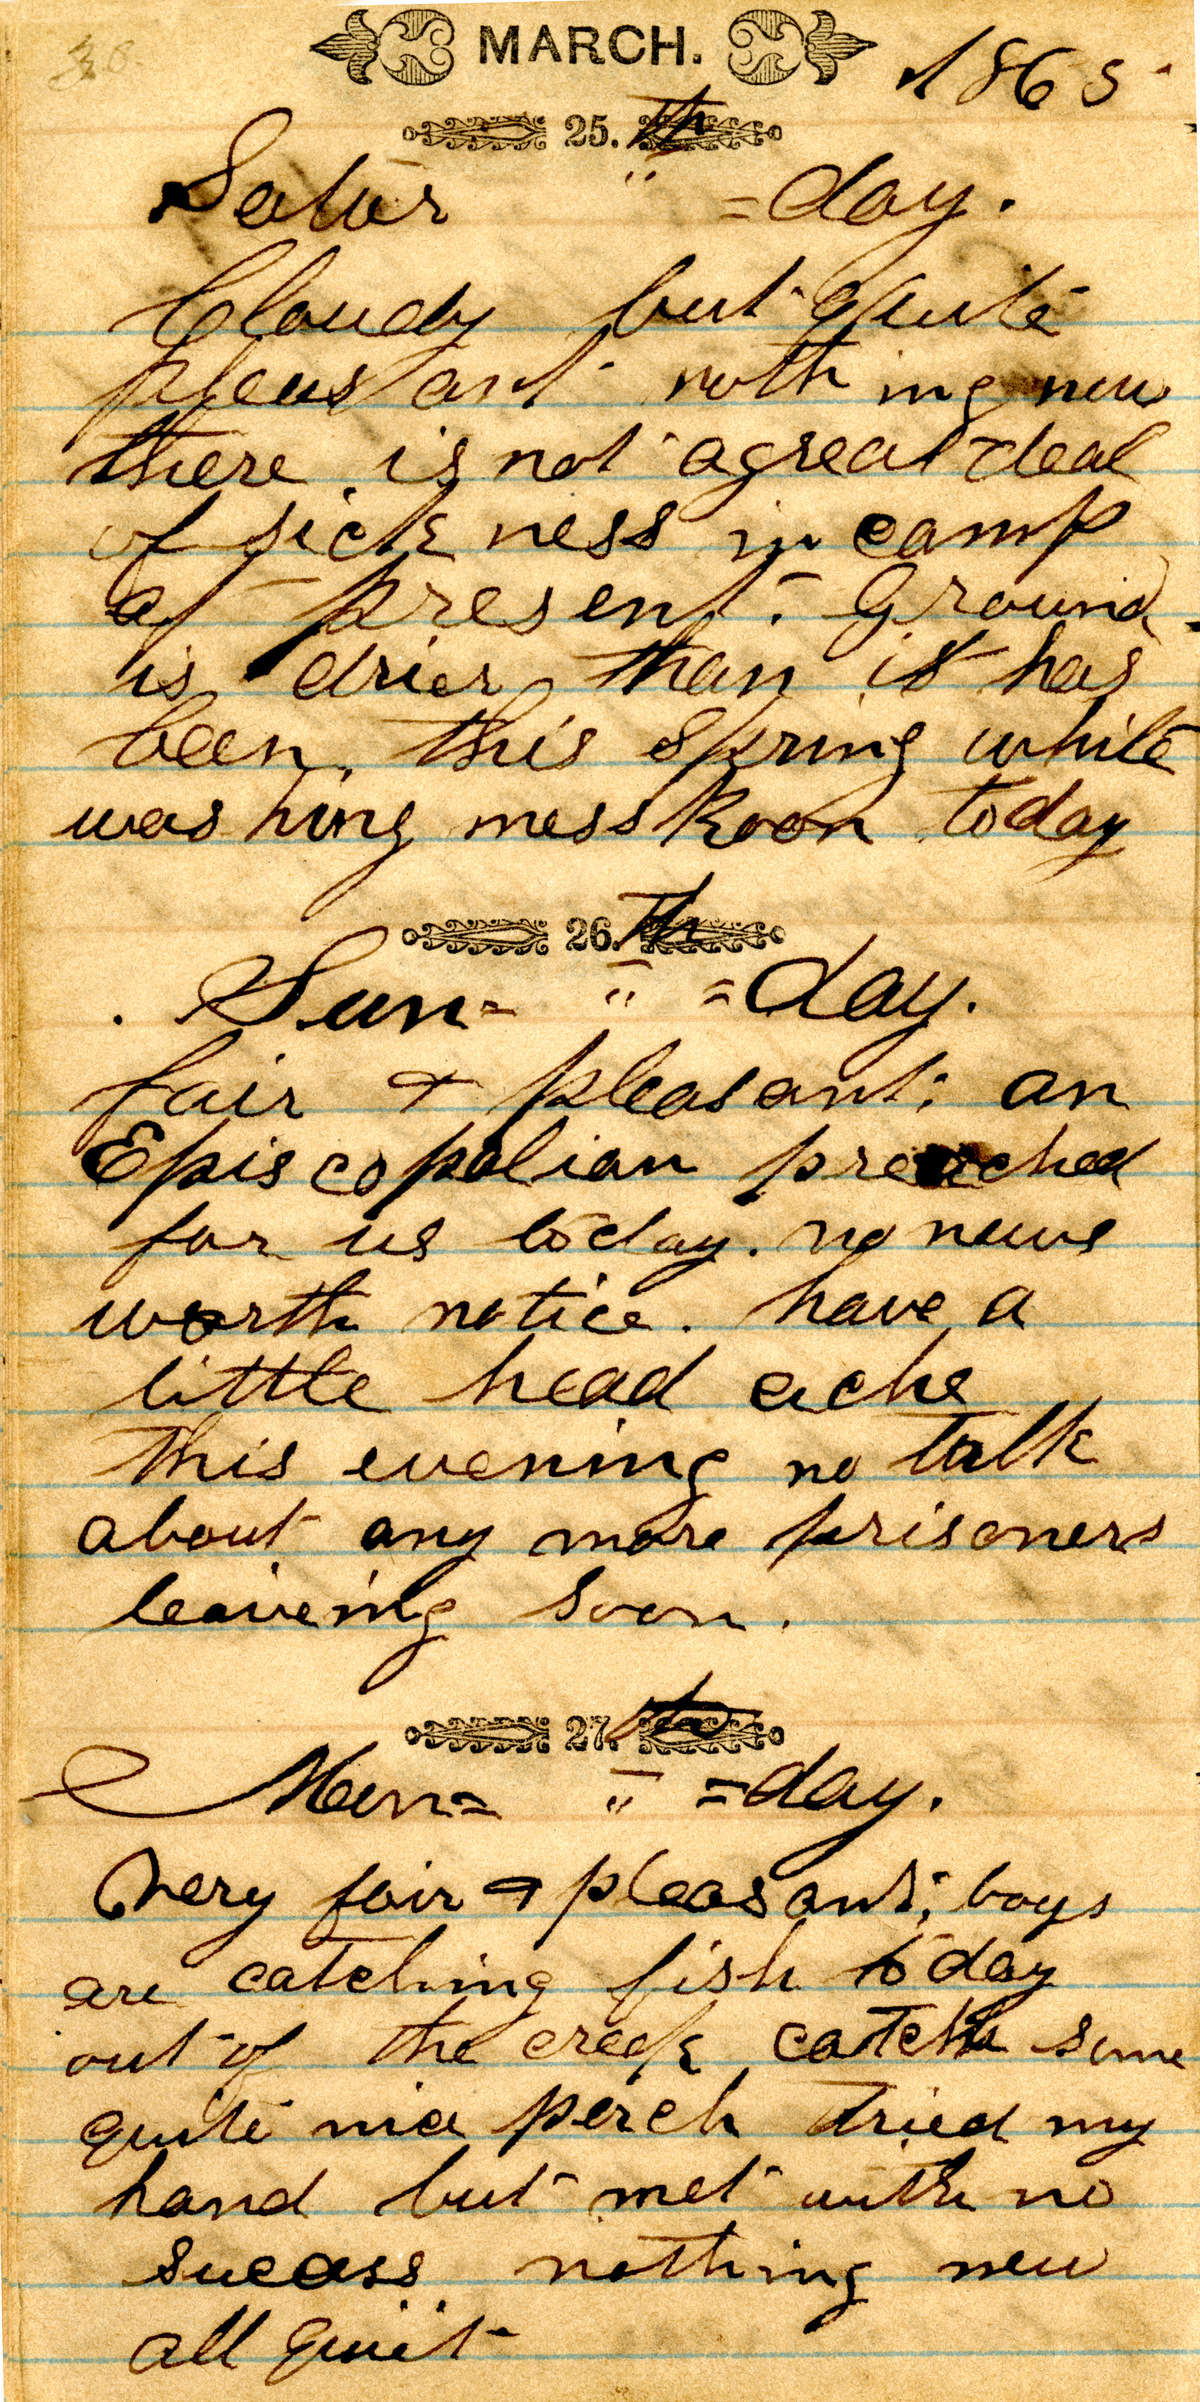 MARCH. 1865
25.th
Satur " =day.
Cloudy but quite
pleasant nothing new
there is not agreat deal
of sickness in camp
at present. Ground
is drier than it has
been this spring white
washing mess Room today
26.th
Sun= " =day.
fair & pleasant; an
Episcopalian preached
for us today. no news
worth notice. have a
little head ache
this evening no talk
about any more prisoners
leaveing soon.
27.th
Mon= " =day.
Very fair & pleasant; boys
are catching fish today
out of the creek catch some
quite nice perch tried my
hand but met with no
sucess nothing new
all quiit